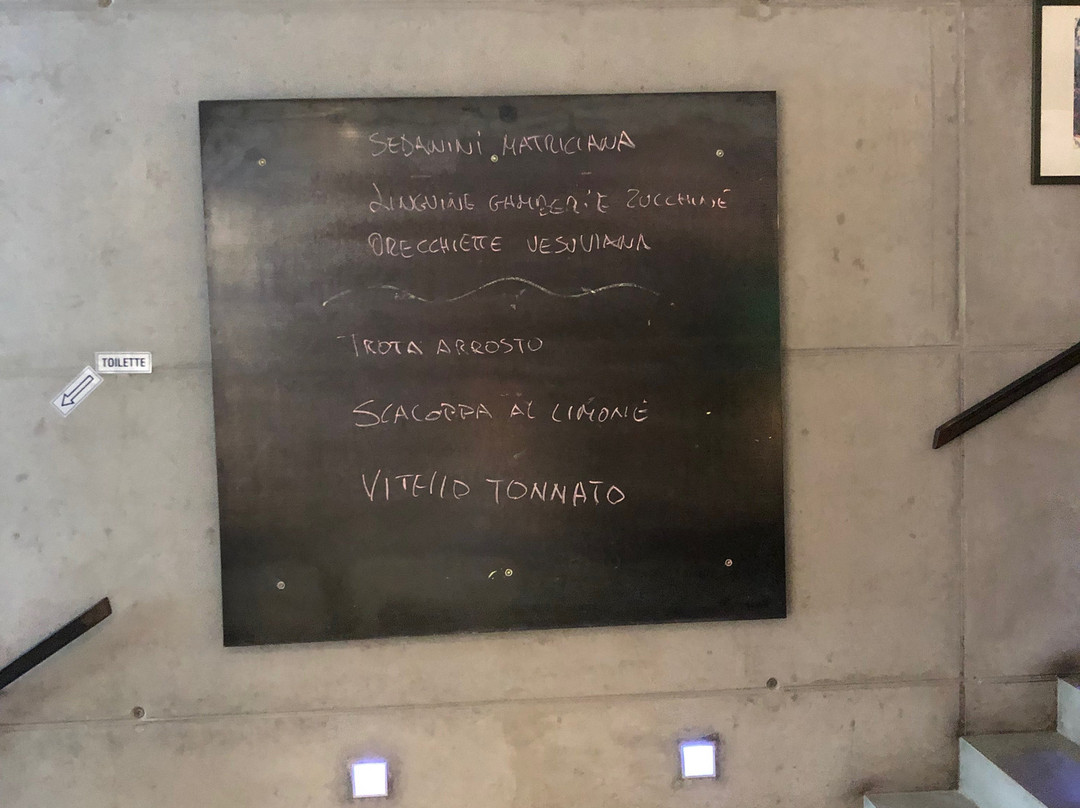 SEDANINI MATRICIANA
LINGUINE GAMBERI E ZUCCHINE
ORECCHIETTE VESUVIANA
TROTA ARROSTO
SCALOPPA AL LIMONE
VITELLO TONNATO
TOILETTE